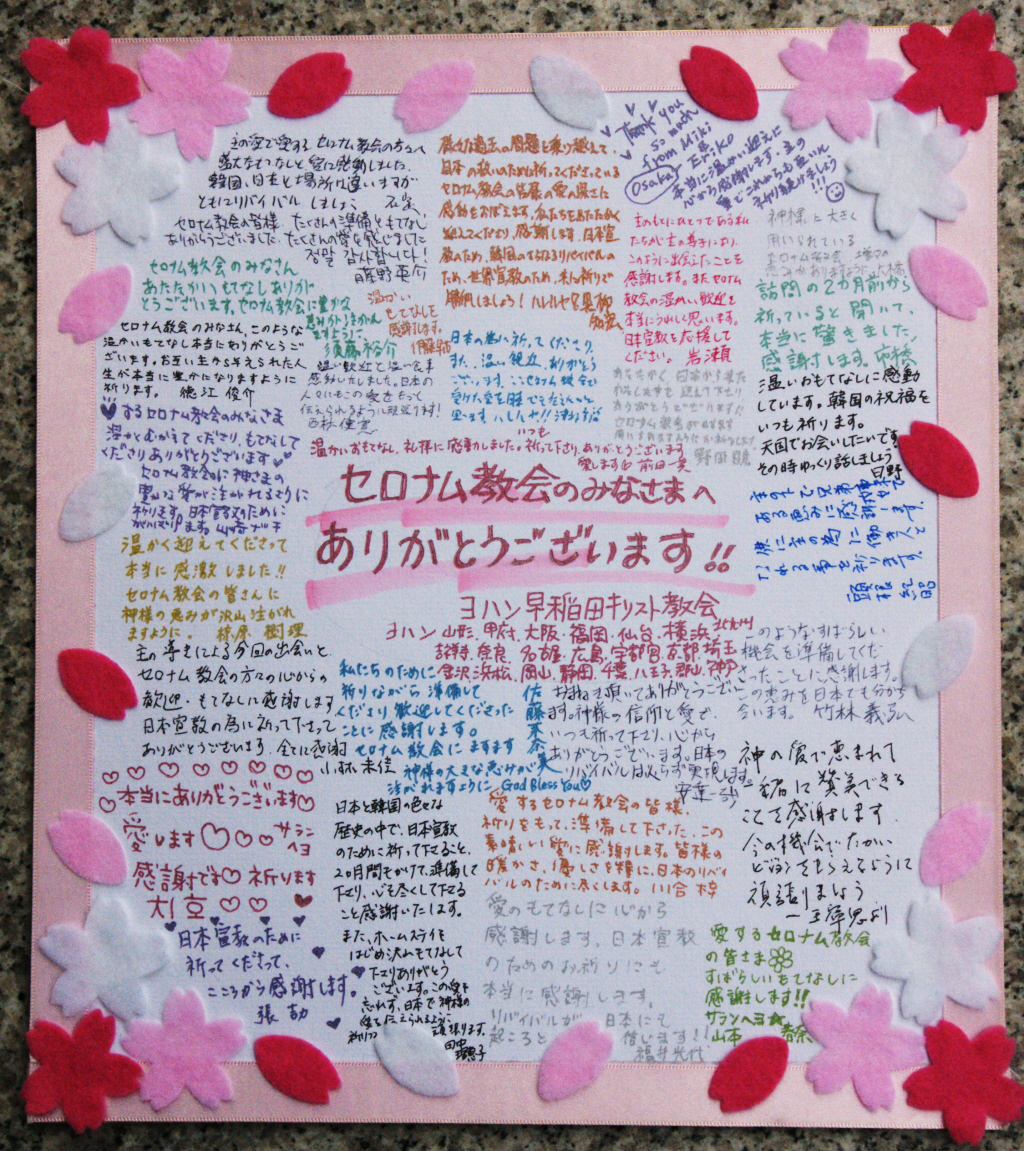 主の愛で愛するセロナム教会の方々へ
盛大なもてなしと愛に感動しました。
韓国、日本と場所は違いますが
ともにリバイバルしましょう
セロナム教会の皆様、たくさんの準備ともてなし
ありがとうございました。たくさんの愛を感じました
정말 감사합니다!
藤野英介
セロナム教会のみなさん
あたたかいもてなしありが
とうございます。セロナム教会に豊かな
恵みがうまかん
ますように
須藤裕介
温かい
もてなしを
感謝します。
セロナム教会のみなさん、このような
温かいもてなし本当にありがとうござ
います。お互い主から与えられた人
生が本当に豊かになりますように
祈ります。 徳江俊介
温い歓迎と温い食事
感動いたしました。日本の
人々にもこの愛をもって
伝えられるように頑張ります!
歴史の問題を乗り越えて、
日本の救いのために祈ってくださっている
セロナム教会の皆様の愛の深さに
感動をおぼえます。私たちをあたたかく
迎えてくださり、感謝します。日本宣
教のため、韓国のさらなるリバイバルの
ため、世界宣教のため、共に祈りで
勝利しましょう!ハレルヤ
日本の為に祈ってくださり、
また、温い歓迎、ありがとう
ございます。ここセロナム教会で
受けた愛を
Thank you
so much
from Miki
&
Eriko
Osaka
本当に温かい迎えに
心から感謝します。主の
愛でこれからも互いに
祈り続けましょう
!!!
主のもとにひとつである私
たちが主の導きにより、
このように出会えたことを
感謝します。またセロナム
教会の温かい歓迎を
本当にうれしく思います。
日本宣教を応援して
ください。 岩瀬
神様に大きく
用いられている
訪問の2カ月前から
祈っていると聞いて、
本当に驚きました。
感謝します。
温いおもてなしに感動
しています。韓国の祝福を
いつも祈ります。
天国でお会いしたいです
その時ゆっくり話しましょう
日野
いつも
温かいおもてなし、礼拝に感動しました。祈って下さり、ありがとうございます
愛します
野田聡
愛するセロナム教会のみなさま
温かくむかえてくださり、もてなして
くださりありがとうございます
セロナム教会に神さまの
豊かな愛が注がれるように
祈ります。日本宣教のために
がんばります。
温かく迎えてくださって
本当に感激しました!!
セロナム教会の皆さんに
神様の恵みが沢山注がれ
ますように。 梓原樹理
セロナム教会のみなさまへ
ありがとうございます!!
ヨハン早稲田キリスト教会
ヨハン山形、甲府、大阪、福岡、仙台、横浜、北九州
奈良、名古屋、広島、宇都宮、京都、埼玉
金沢、浜松、岡山、静岡、千葉、八王子、郡山、神戸
主の中で兄弟姉妹で
ある恵みに感謝します。
主の為に働き人と
なれる事を祈ります。
主の導きによる今回の出会いと、
セロナム教会の方々の心からの
歓迎・もてなしに感謝します
日本宣教の為に祈って下さって
ありがとうございます。全てに感謝
小林未佳
私たちのために
祈りながら準備して
くださり歓迎してくださった
ことに感謝します。
セロナム教会にますます
神様の大きな恵みが
注がれますように。God Bless You♡
佐藤
お招き頂いてありがとうござい
ます。神様の信仰と愛で、
いつも祈って下さり、心から
ありがとうございます。日本の
リバイバルは必らず実現します。
このようなすばらしい
機会を準備してくだ
さったことに感謝します。
この恵みを日本でも分かち
合います。 竹林義弘
♡♡♡♡♡♡♡♡♡
♡本当にありがとうございます♡
愛します♡♡♡ サラン
ヘヨ
感謝です♡祈ります
♡♡ ♥
日本宣教のために
祈ってくださって、
こころから感謝します。
日本と韓国の色々な
歴史の中で、日本宣教
のために祈って下さること、
2カ月間もかけて、準備して
下さり、心を尽くして下さる
こと感謝いたします。
また、ホームステイを
はじめ沢山もてなして
下さりありがとう
ございます。この愛を
忘れず、日本で神様の
愛を伝えられるように
祈りつつ 頑張ります。
愛するセロナム教会の皆様、
祈りをもって、準備して下さった、この
素晴しい愛に感謝します。皆様の
暖かさ、優しさを糧に、日本のリバイ
バルのために尽くします。川合梓
愛のもてなしに心から
感謝します。日本宣教
のためのお祈りにも
本当に感謝します。
リバイバルが 日本にも
起こると 信じます!
福井光代
神の愛で恵まれて
一緒に賛美できる
ことを感謝します。
今の機会でたかい
ビジョンをもらえるように
頑張りましょう
愛するセロナム教会
の皆さま
すばらしいもてなしに
感謝します!!
サランヘヨ☆
山本 春奈